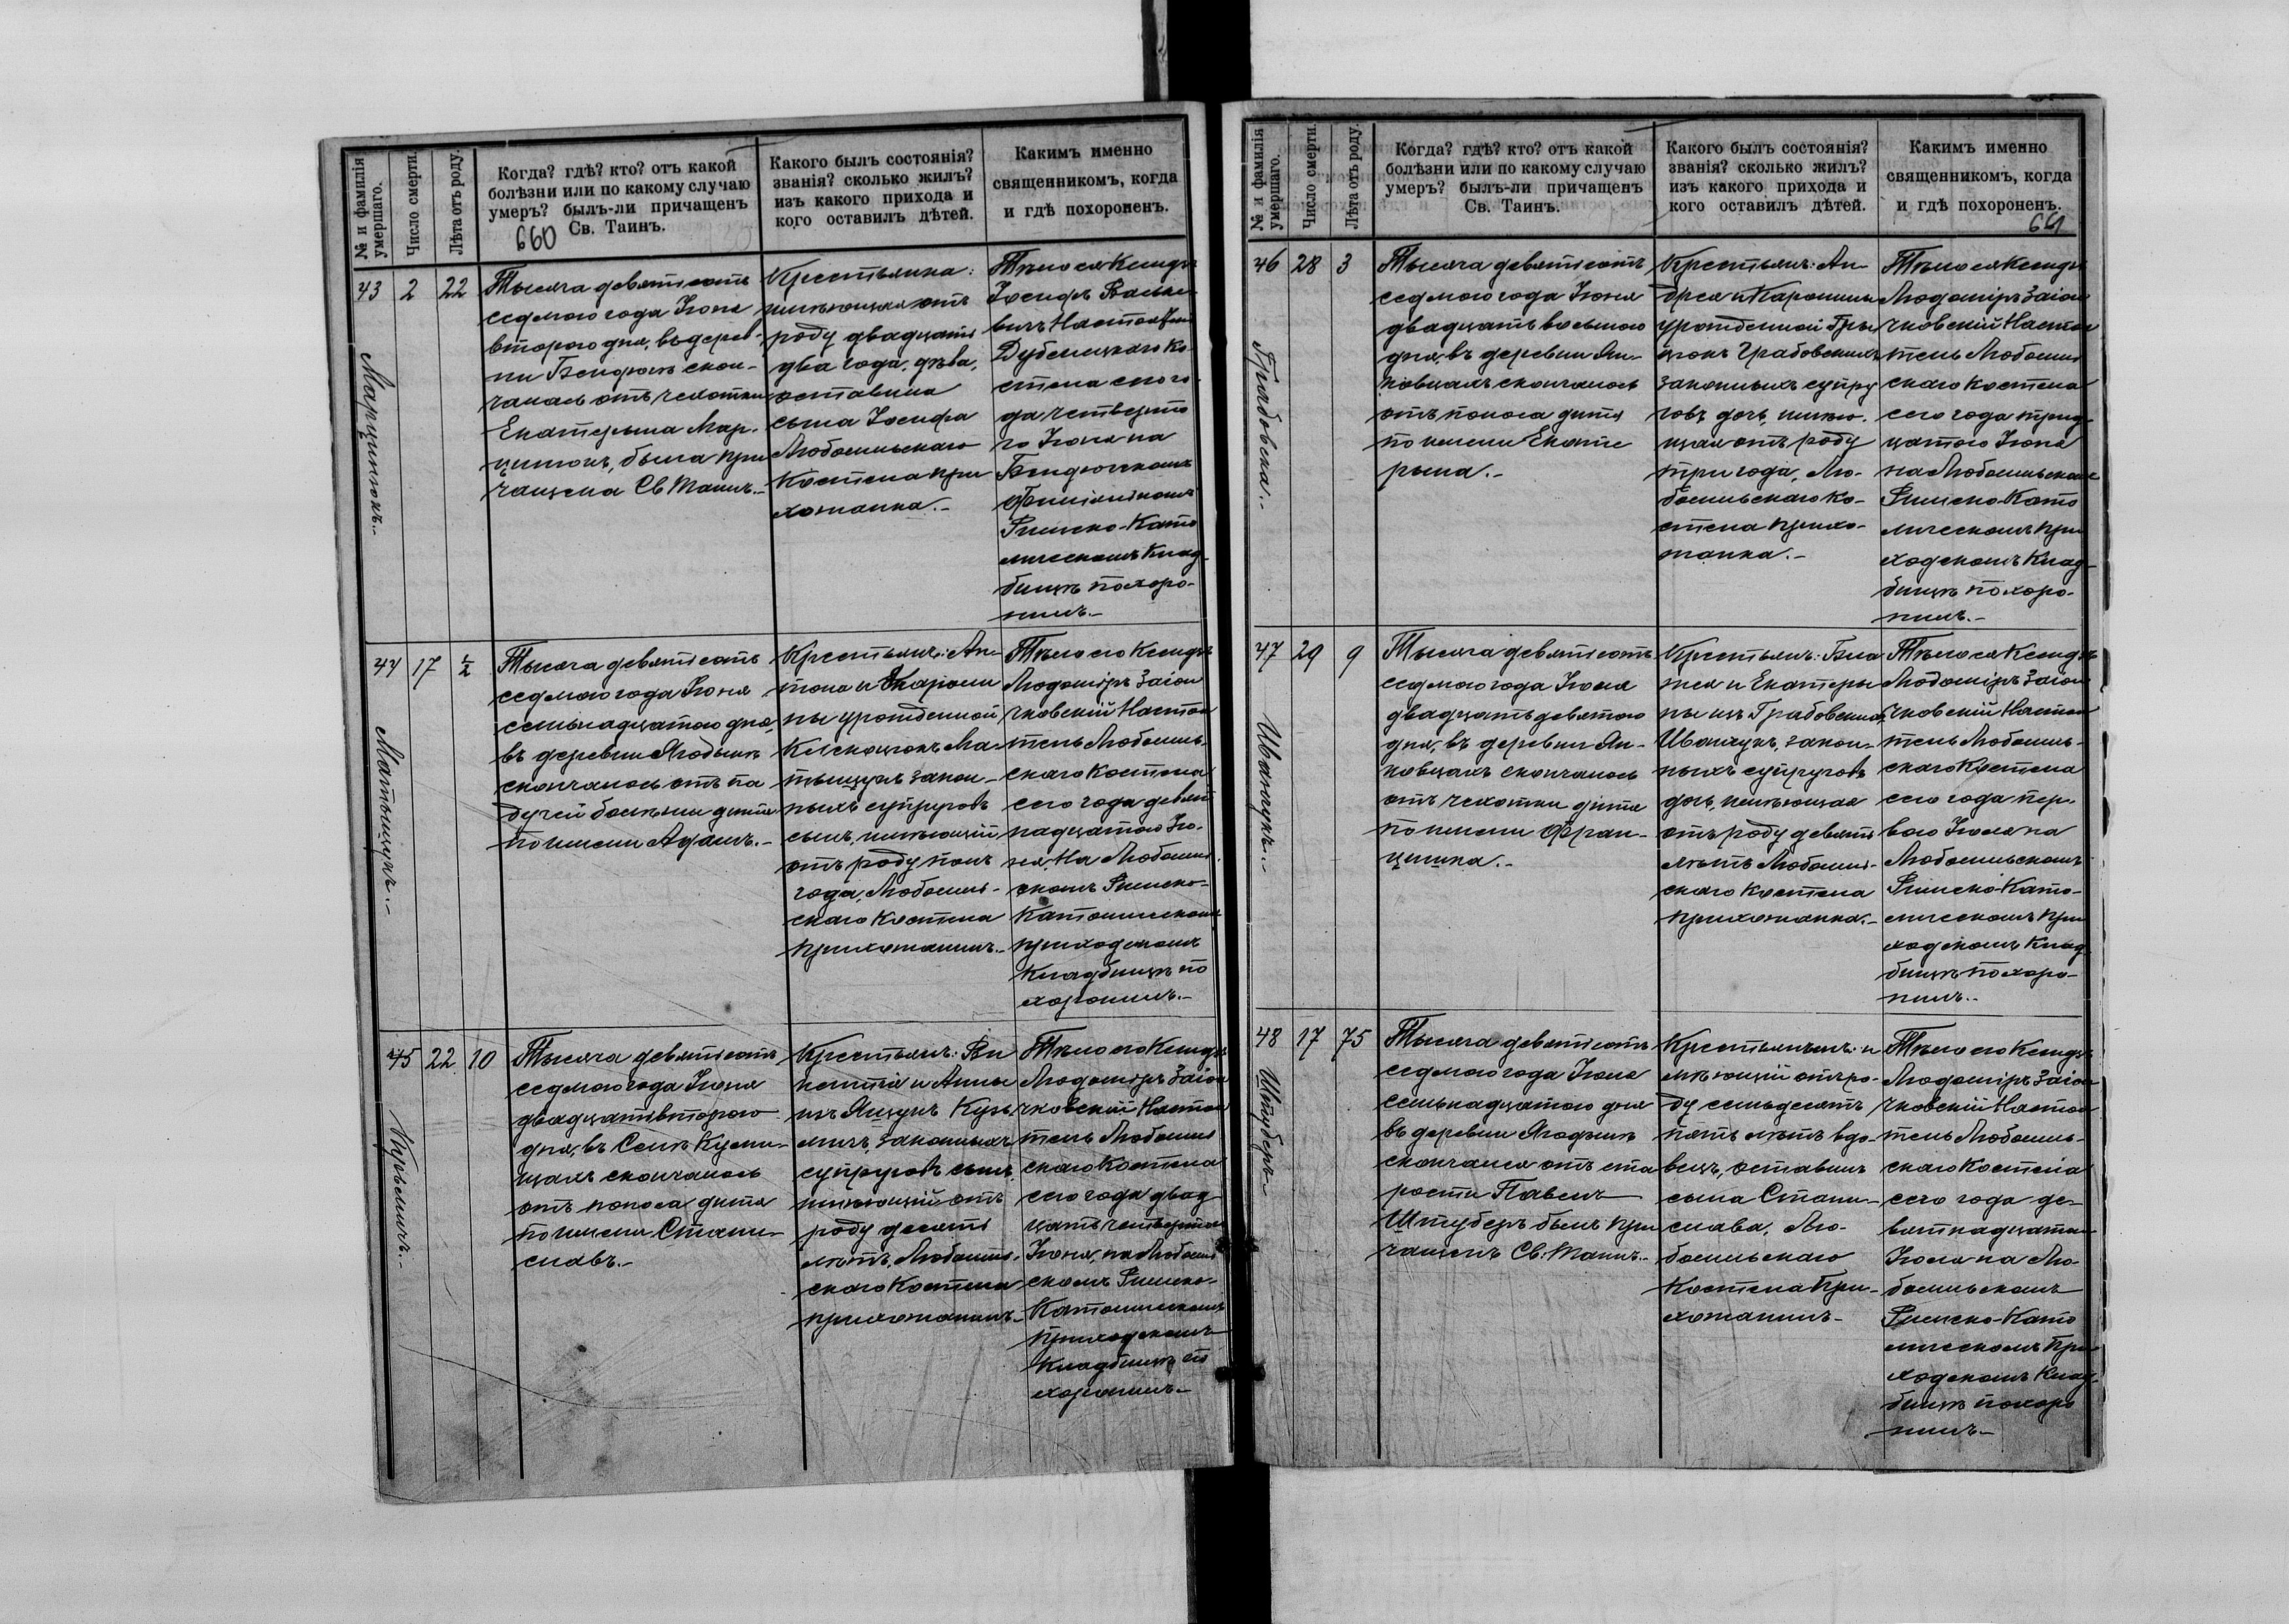 № и фамилія
умершаго.
Число смерти.
Лѣта отъ роду.
Когда? гдѣ? кто? отъ какой
болѣзни или по какому случаю
умеръ? былъ-ли причащенъ
Св. Таинъ.
660
Какого былъ состоянія?
званія? сколько жилъ?
изъ какого прихода и
кого оставилъ дѣтей.
Какимъ именно
священникомъ, когда
и гдѣ похороненъ.
43
Марцинюкъ.
2
22
Тысяча девятьсотъ
седмого года Іюня
второго дня, въ дерев-
ни скон-
чалась отъ чахотки
Екатерина Мар-
цинюкъ, была при
чащена Св Таинъ.-
Крестьянка:
имѣющая отъ
роду двадцать
два года, дѣва,
оставила
сына Іосифа
Любомльскаго
Костела при
хожанка.-
Тѣло ея Ксендзъ
Іосифъ
Настоятель
Дубенскаго Ко-
стела сего го-
да четверта
го Іюня на
Римско-Като
лическомъ Клад-
бищѣ похоро-
нилъ.-
44
Матыщукъ.-
17
½
Тысяча девятьсотъ
седмого года Іюня
семьнадцатого дня,
въ деревни Ягодинѣ
скончалось отъ па
дучей болѣзни дитя
по имени Адамъ.-
Крестьянъ: Ан-
тона и Кароли
ны урожденной
Ма-
тыщукъ закон-
ныхъ супруговъ
сынъ, имѣющій
отъ роду полъ
года, Любомль-
скаго Костела
прихожанинъ.-
Тѣло его Ксендзъ
Людомiръ Заiон
чковскiй Настоя
тель Любомль-
скаго Костела
сего года девят
надцатого Iю-
ня, на Любомль
скомъ Римско-
Католическомъ
приходскомъ
Кладбищѣ по
хоронилъ.-
45
Кузьмичъ.-
22
10
Тысяча девятьсотъ
седмого года Іюня
двадцать второго
дня, въ Селѣ Кусни-
щахъ скончалось
отъ поноса дитя
по имени Стани-
славъ.-
Крестьянъ: Ви
кентія и Анны
изъ Ящукъ Кузь
мичъ, законныхъ
супруговъ сынъ,
имѣющій отъ
роду десять
лѣтъ, Любомль-
скаго Костела
прихожанинъ.-
Тѣло его Ксендзъ
Людомiръ Заiон
чковскiй Настоя
тель Любомль
скаго Костела
сего года двад
цать четвертаго
Іюня, на Любомль
скомъ Римско-
Католическомъ
приходскомъ
Кладбищѣ по
хоронилъ.-
№ и фамилія
умершаго.
Число смерти.
Лѣта отъ роду.
Когда? гдѣ? кто? отъ какой
болѣзни или по какому случаю
умеръ? былъ-ли причащенъ
Св. Таинъ.
Какого былъ состоянія?
званія? сколько жилъ?
изъ какого прихода и
кого оставилъ дѣтей.
Какимъ именно
священникомъ, когда
и гдѣ похороненъ.
661
46
Грабовска.-
28
3
Тысяча девятьсотъ
седмого года Іюня
двадцать восьмого
дня, въ деревни Ян-
ковцахъ скончалось
отъ поноса дитя
по имени Екате
рына.-
Крестьянъ: Ан
дрея и Каролины
урожденной Гры
цюкъ Грабовскихъ
законныхъ супру
говъ дочь, имѣю-
щая отъ роду
три года, Лю-
бомльскаго Ко-
стела прихо-
жанка.-
Тѣло ея Ксендзъ
Людомiръ Заiон
чковскiй Настоя
тель Любомль
скаго Костела
сего года трид-
цатого Іюня
на Любомльскомъ
Римско-Като
лическомъ при
ходскомъ Клад-
бищѣ похоро-
нилъ.-
47
Иванчукъ.-
29
9
Тысяча девятьсотъ
седмого года Іюня
двадцать девятого
дня, въ деревни Ян-
ковцахъ скончалось
отъ чахотки дитя
по имени Фран-
цишка.-
Крестьянъ: Вла
жея и Екатери
ны изъ Грабовскихъ
Иванчукъ, закон-
ныхъ супруговъ
дочь, имѣющая
отъ роду девять
лѣтъ Любомль-
скаго Костела
прихожанка.-
Тѣло ея Ксендзъ
Людомiръ Заiон
чковскiй Настоя
тель Любомль-
скаго Костела
сего года пер-
вого Іюля на
Любомльскомъ
Римско-Като-
лическомъ при
ходскомъ Клад
бищѣ похоро-
нилъ.-
48
Штуберъ.-
17
75
Тысяча девятьсотъ
седмого года Іюля
семьнадцатого дня
въ деревни Ягодинѣ
скончался отъ ста
рости Павелъ
Штуберъ былъ при
чащенъ Св: Таинъ.-
Крестьянинъ: и
мѣющій отъ ро-
ду семьдесятъ
пять лѣтъ вдо-
вецъ, оставилъ
сына Стани-
слава, Лю-
бомльскаго
Костела При-
хожанинъ.-
Тѣло его Ксендзъ
Людомiръ Заiон
чковскiй Настоя
тель Любомль-
скаго Костела
сего года де-
вятнадцатого
Іюля на Лю-
бомльскомъ
Римско-Като
лическомъ При
ходскомъ Клад-
бищѣ похоро
нилъ.-